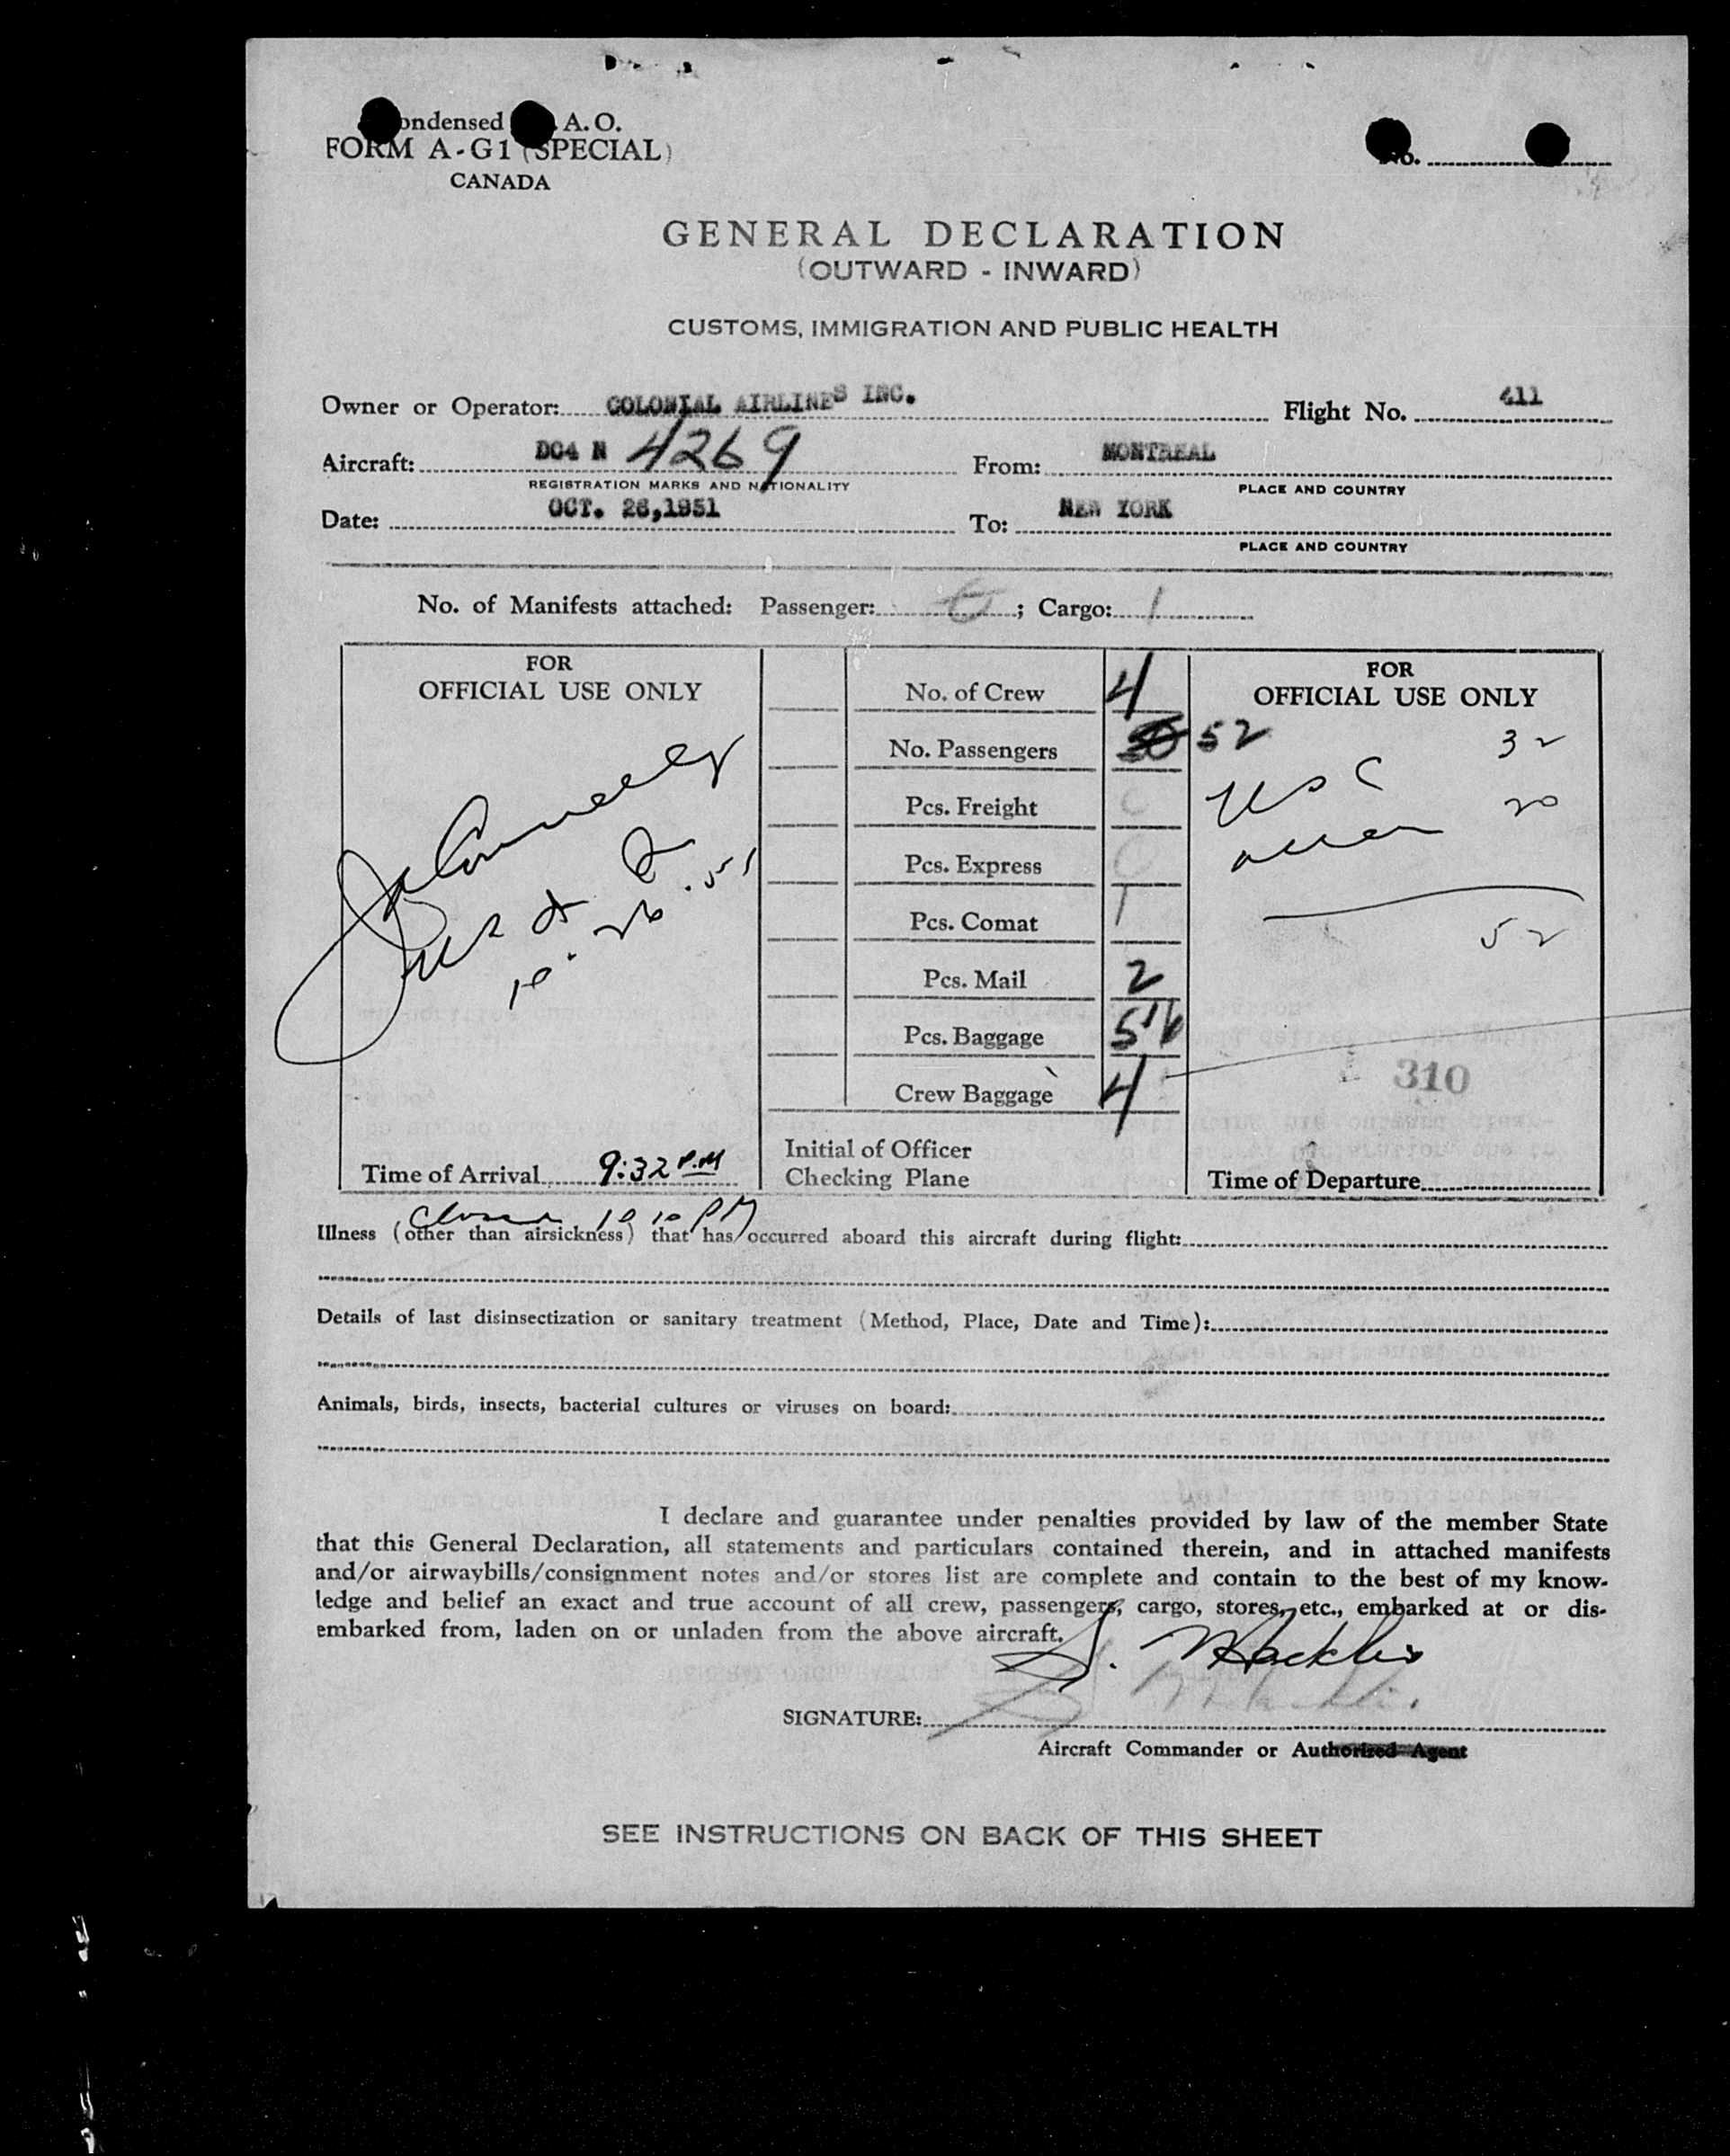 ondensed A.O.
FORM A-G1 (SPECIAL)
CANADA
No.
GENERAL DECLARATION
(OUTWARD - INWARD)
CUSTOMS, IMMIGRATION AND PUBLIC HEALTH
Owner or Operator: COLONIAL AIRLINES INC. Flight No. 411
Aircraft: DC4 N 4269 From: MONTREAL
REGISTRATION MARKS AND NATIONALITY PLACE AND COUNTRY
Date: OCT. 26,1951 To: NEW YORK
PLACE AND COUNTRY
No. of Manifests attached: Passenger: 6; Cargo: 1
FOR
OFFICIAL USE ONLY
10.26.51
Time of Arrival 9:32 P.M
No. of Crew 4
No. Passengers 52
Pcs. Freight
Pcs. Express
Pcs. Comat 1
Pcs. Mail 2
Pcs. Baggage
Crew Baggage 4
Initial of Officer
Checking Plane
FOR
OFFICIAL USE ONLY
USC 32
alien 20
52
310
Time of Departure
Closed 10 10 PM
Illness (other than airsickness) that has occurred aboard this aircraft during flight:
Details of last disinsectization or sanitary treatment (Method, Place, Date and Time):
Animals, birds, insects, bacterial cultures or viruses on board:
I declare and guarantee under penalties provided by law of the member State
that this General Declaration, all statements and particulars contained therein, and in attached manifests
and/or airwaybills/consignment notes and/or stores list are complete and contain to the best of my know-
ledge and belief an exact and true account of all crew, passengers, cargo, stores, etc., embarked at or dis-
embarked from, laden on or unladen from the above aircraft.
SIGNATURE:
Aircraft Commander or Authorized Agent
SEE INSTRUCTIONS ON BACK OF THIS SHEET